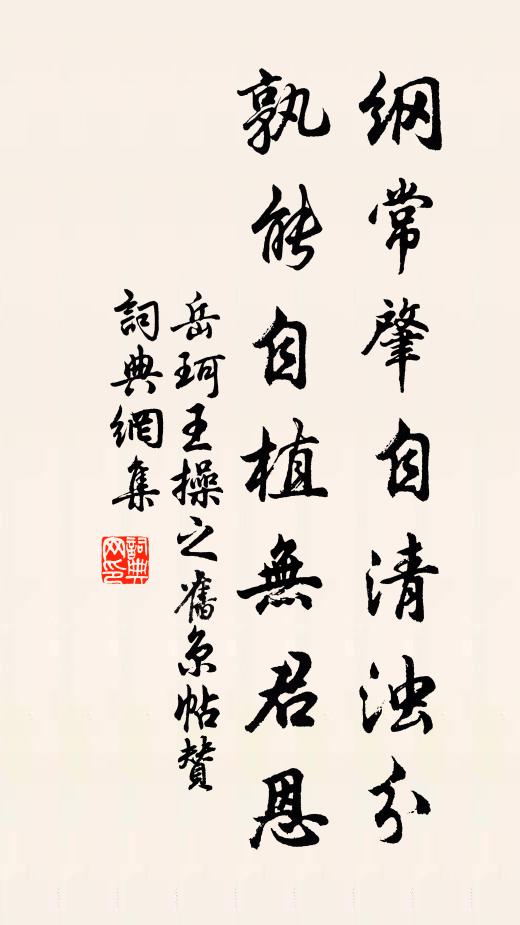 纲常肇自清浊分
孰能自植無君恩
岳珂王操之舊京帖贊
詞典網集
詞典網印